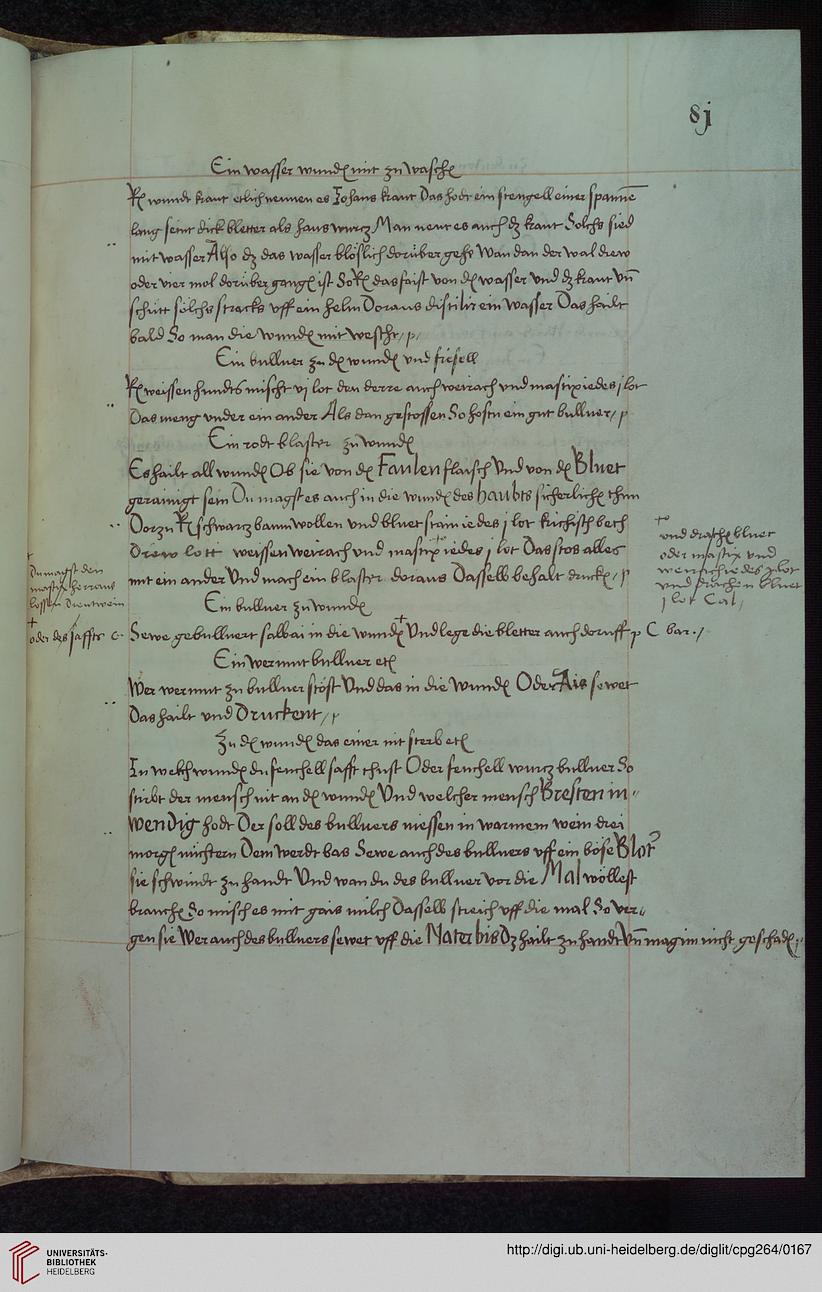 8j
Ein wasser wunden mit zu waschen
Rx wundt kraut etlich nennen es Johans kraut Das hodt ein stengell einer spannen
lang seint dick bletter als hauswurcz Man nent es auch dz kraut Solchs sied
mit wasser Also dz das wasser blöslich dorüber gehe Wan dan der wal drew
oder vier mol dorüber gangen ist So Rx das faist von dem wasser und dz kraut Vnd
schütt solchs stracks vff ein helm Doraus distilir ein wasser Das hailt
bald So man die wunden mit wescht
Ein bullner zu den wunden vnd fiesell
Rx weissen hundts mischt vj lot den derre auch weirach vnd mastix iedes j lot
Das meng vnder ein ander Als dan gestossen So hostu ein gut bullner
Ein rodt blaster zu wunden
Es hailt all wunden Ob sie von dem Faulen flaisch Vnd von dem Bluet
gerainigt sein Du magst es auch in die wunden des haubts sicherlichen thun
Dorzu Rx schwarz baumwollen vnd bluetstain iedes j lot krichisch bech
Drew lott weissen weirach vnd mastix iedes j lot Das stos alles
mit ein ander Vnd mach ein blaster doraus Dassell behalt drucken
Du magst den
mastix herraus
lossen
vnd drachen bluet
oder mastix vnd
weirach iedes j lot
vnd drachen bluet
j lot
Ein bullner zu wunden
oder des saffts
Sewe gebullnert salbai in die wunden Vnd lege die bletter auch doruff C bar.
Ein wermut bullner etc
Wer wermut zu bullner stöst Vnd das in die wunden Oder Ais sewet
Das hailt vnd Druckent
Zu den wunden das einer nit sterb etc
In welch wunden du fenchell safft thust Oder fenchell wurcz bullner So
stirbt der mensch nit an den wunden Vnd welcher mensch Bresten in-
wendig hodt Der soll des bullners niessen in warmem wein drei
morgen nüchtern Dem werdt bas Sewe auch des bullners vff ein böse Bloter
sie schwindt zu handt Vnd wan du des bullner vor die Mal wöllest
brauchen So misch es mit gais milch Dassell streich vff die mal So ver-
gen sie Wer auch des bullners sewet vff die Nater bis Dz hailt zu handt Vnd mag im nicht geschaden
UNIVERSITÄTS-
BIBLIOTHEK
HEIDELBERG
http://digi.ub.uni-heidelberg.de/diglit/cpg264/0167